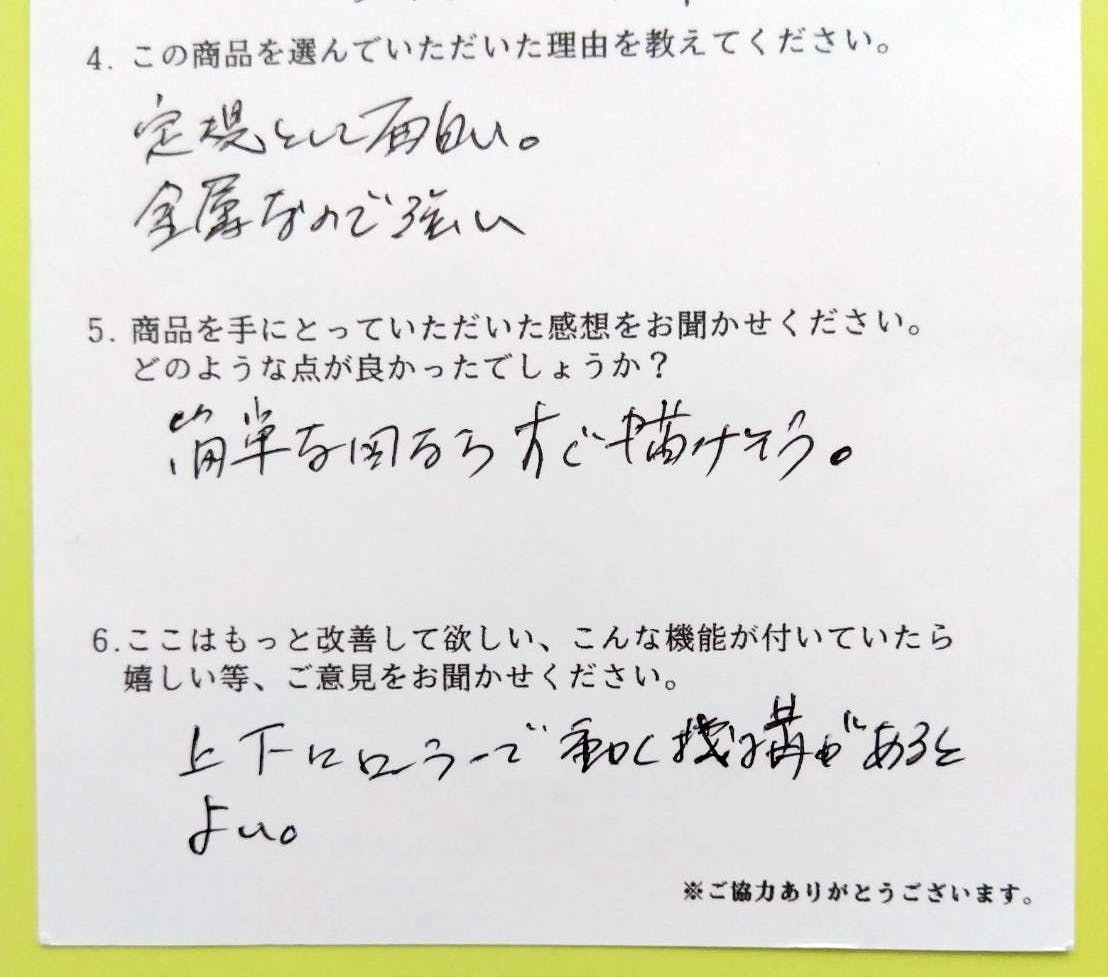 4. この商品を選んでいただいた理由を教えてください。
定規として面白い。
金属なので強い
5. 商品を手にとっていただいた感想をお聞かせください。
どのような点が良かったでしょうか?
簡単な図ならすぐ描けそう。
6.ここはもっと改善して欲しい、こんな機能が付いていたら
嬉しい等、ご意見をお聞かせください。
上下にローラーで動く機構があると
よい。
※ご協力ありがとうございます。